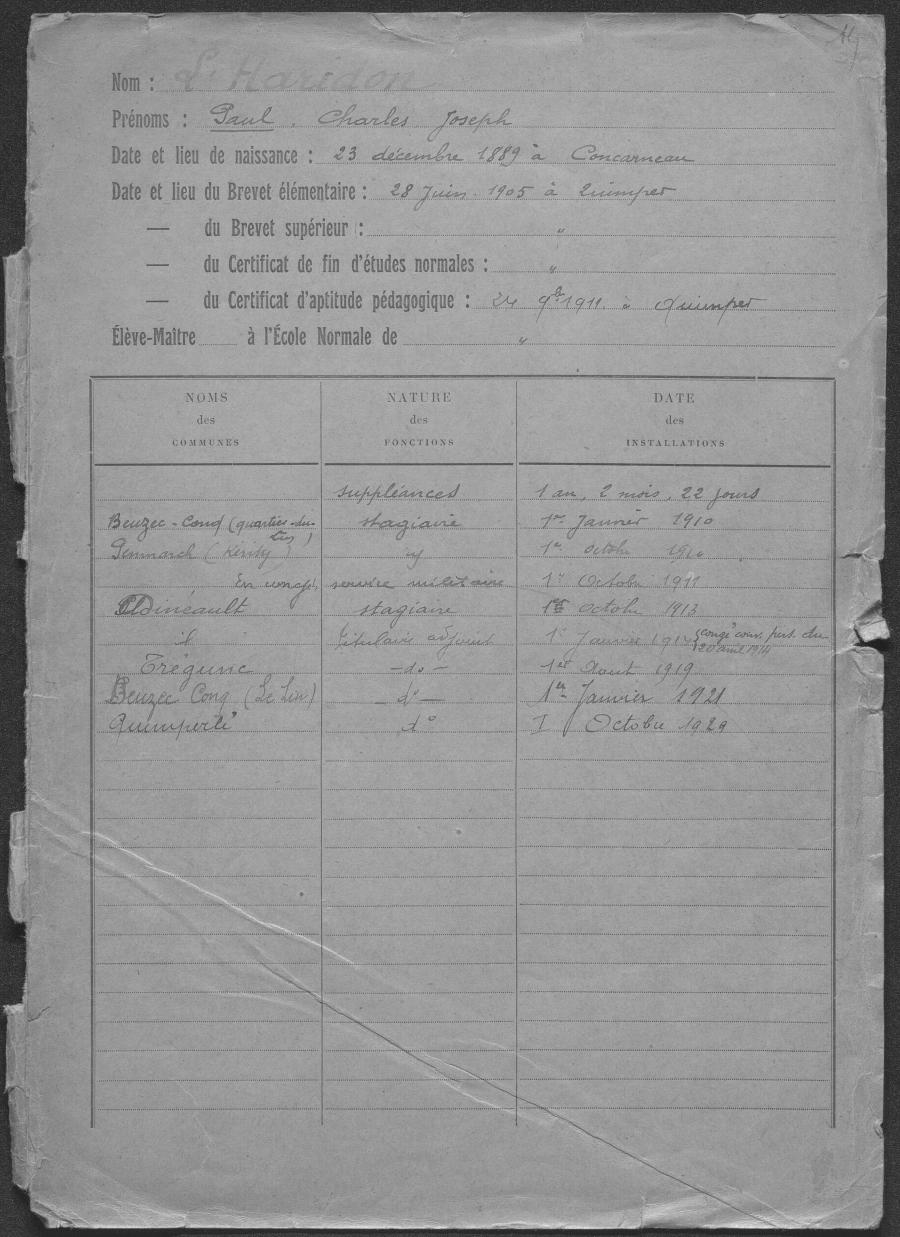 Nom : L'Haridon
Prénoms : Paul, Charles Joseph
Date et lieu de naissance : 23 décembre 1889 à Concarneau
Date et lieu du Brevet élémentaire : 28 Juin 1905 à Quimper
— du Brevet supérieur : "
— du Certificat de fin d'études normales : "
— du Certificat d'aptitude pédagogique : 24 9bre 1911 à Quimper
Élève-Maître à l'École Normale de "
NOMS des COMMUNES NATURE des FONCTIONS DATE des INSTALLATIONS
suppléances 1 an, 2 mois, 22 jours
Beuzec-Conq (quartier-du-Lin) stagiaire 1er Janvier 1910
Penmarch (Kérity) " 1er Octobre 1910
En congé, service militaire 1er Octobre 1911
Dinéault stagiaire 1er Octobre 1913
id titulaire adjoint 1er Janvier 1914 (congé conv. pers. du 20 avril 1914
Trégunc — do — 1er Aout 1919
Beuzec Conq (Le Lin) — do — 1er Janvier 1921
Quimperlé do I Octobre 1929